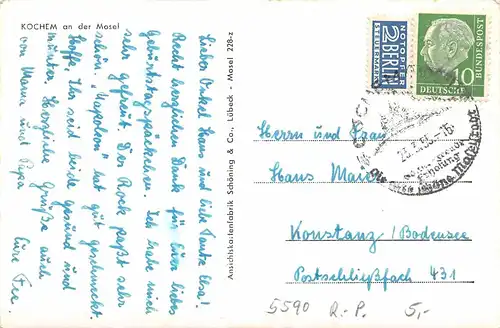 KOCHEM an der Mosel
Lieber Onkel Hans und liebe Tante Elsa!
Recht herzlichen Dank für Euer liebes
Geburtstagspäckchen. Ich habe mich
sehr gefreut. Der Rock paßt sehr
schön. "Naperlon" hat gut geschmeckt.
Hoffe, Ihr seid beide gesund und
munter. Herzliche Grüße auch
von Mama und Papa
Eure
Ansichtskartenfabrik Schöning & Co., Lübeck - Mosel 228-z
NOTOPFER
2 BERLIN
STEUERMARKE
DEUTSCHE BUNDESPOST
10
Herrn und Frau
Hans Maier
Konstanz/Bodensee
Postschließfach 431
5590 R.-P. 5,-